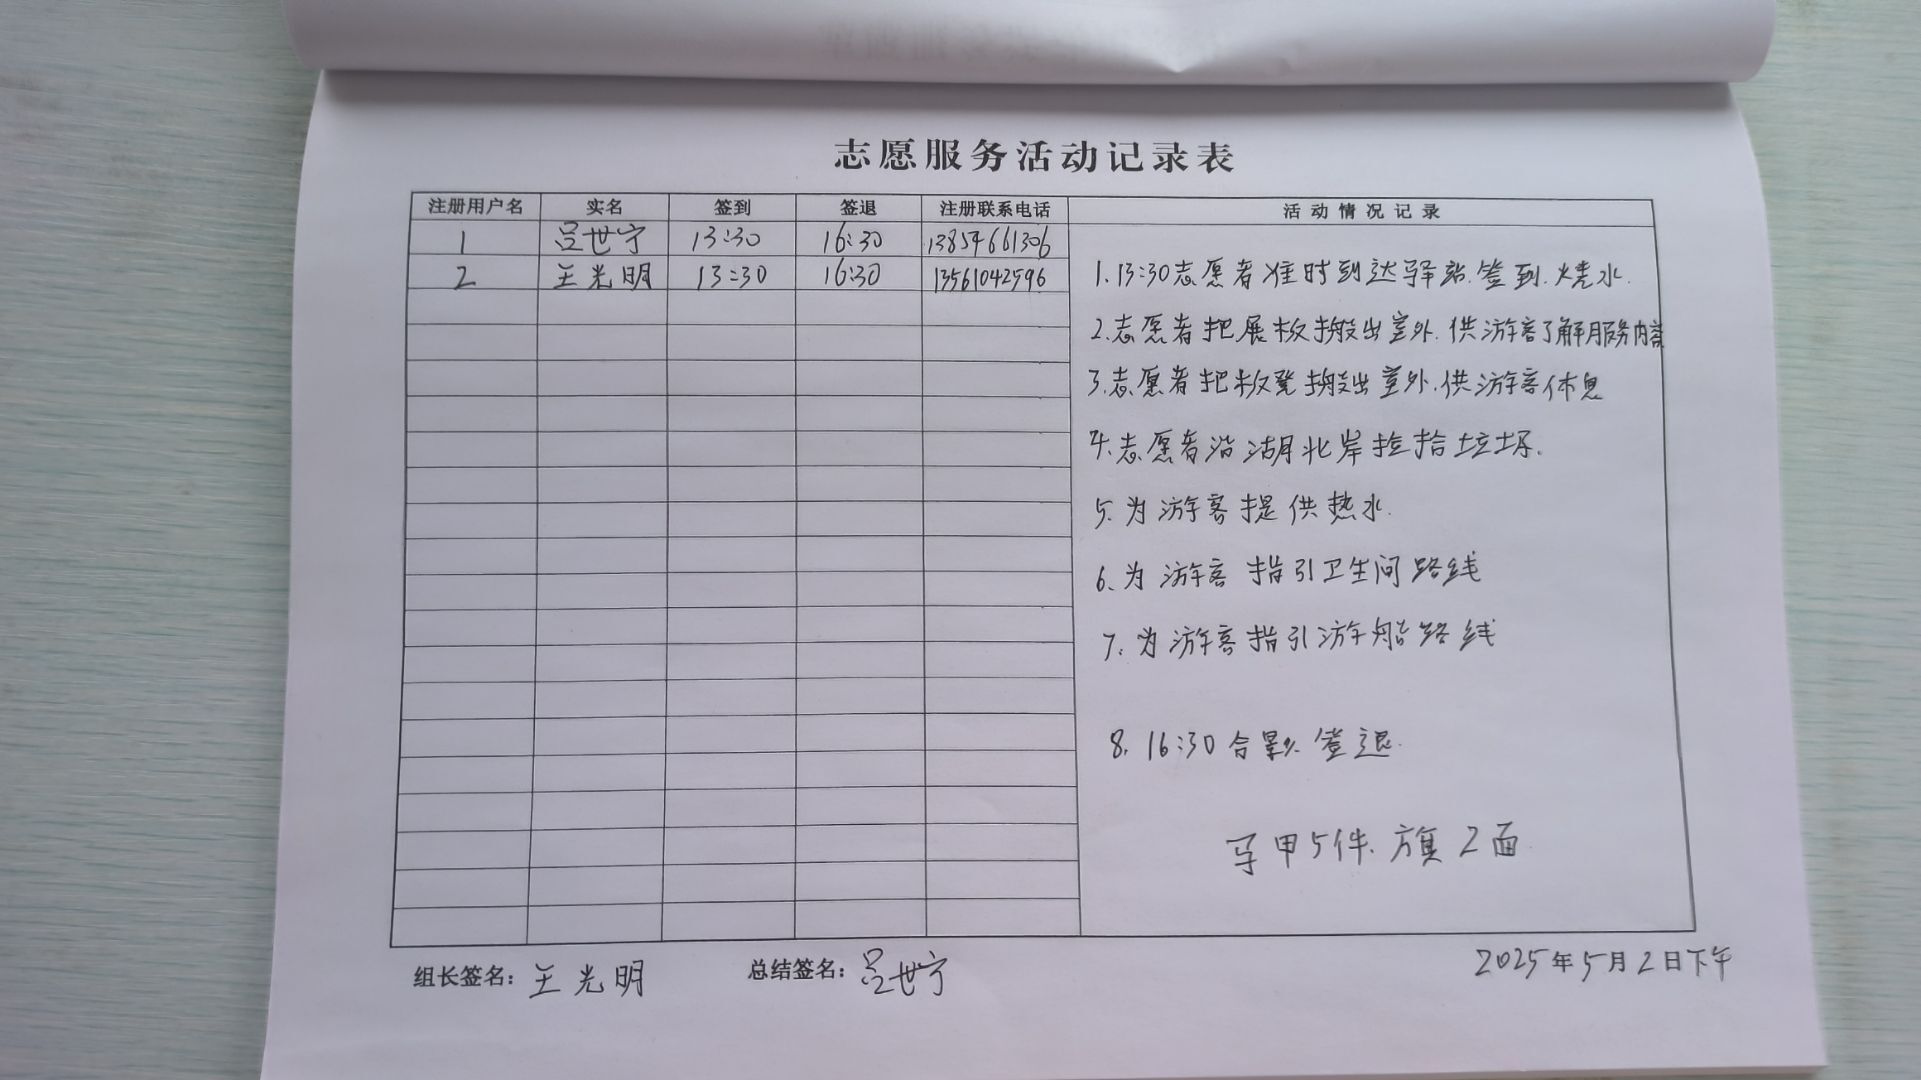 志愿服务活动记录表
注册用户名 实名 签到 签退 注册联系电话 活动情况记录
1 吕世宁 13:30 16:30 13854661306
2 王光明 13:30 16:30 13561042596
1.13:30志愿者准时到达驿站.签到.烧水.
2.志愿者把展板搬出室外.供游客了解服务内容
3.志愿者把板凳搬出室外.供游客休息
4.志愿者沿湖北岸捡拾垃圾.
5.为游客提供热水.
6.为游客指引卫生间路线
7.为游客指引游船路线
8.16:30合影.签退.
马甲5件.旗2面
组长签名：王光明 总结签名：吕世宁 2025年5月2日下午